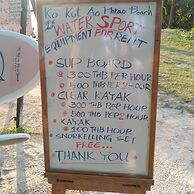 Ko Kut Ao Phrao Beach
WATER SPORT
EQUIPMENT FOR RENT
SUP BOARD
300 THB PER HOUR
500 THB PER 2 HOUR
CLEAR KAYAK
300 THB PER HOUR
500 THB PER 2 HOUR
KAYAK
100 THB HOUR
SNORKELLING SET
FREE...
THANK YOU